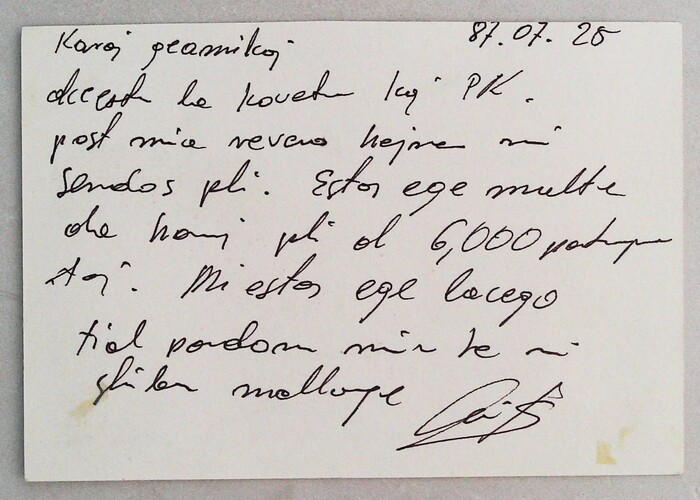 87.07.28
Karaj geamikoj
akceptu la koverton kaj PK.
post mia reveno hejmen mi
sendos pli. Estas ege multe
da homoj pli ol 6,000 partopren
taj. Mi estas ege lacego
tial pardonu min ke mi
skribas mallonge